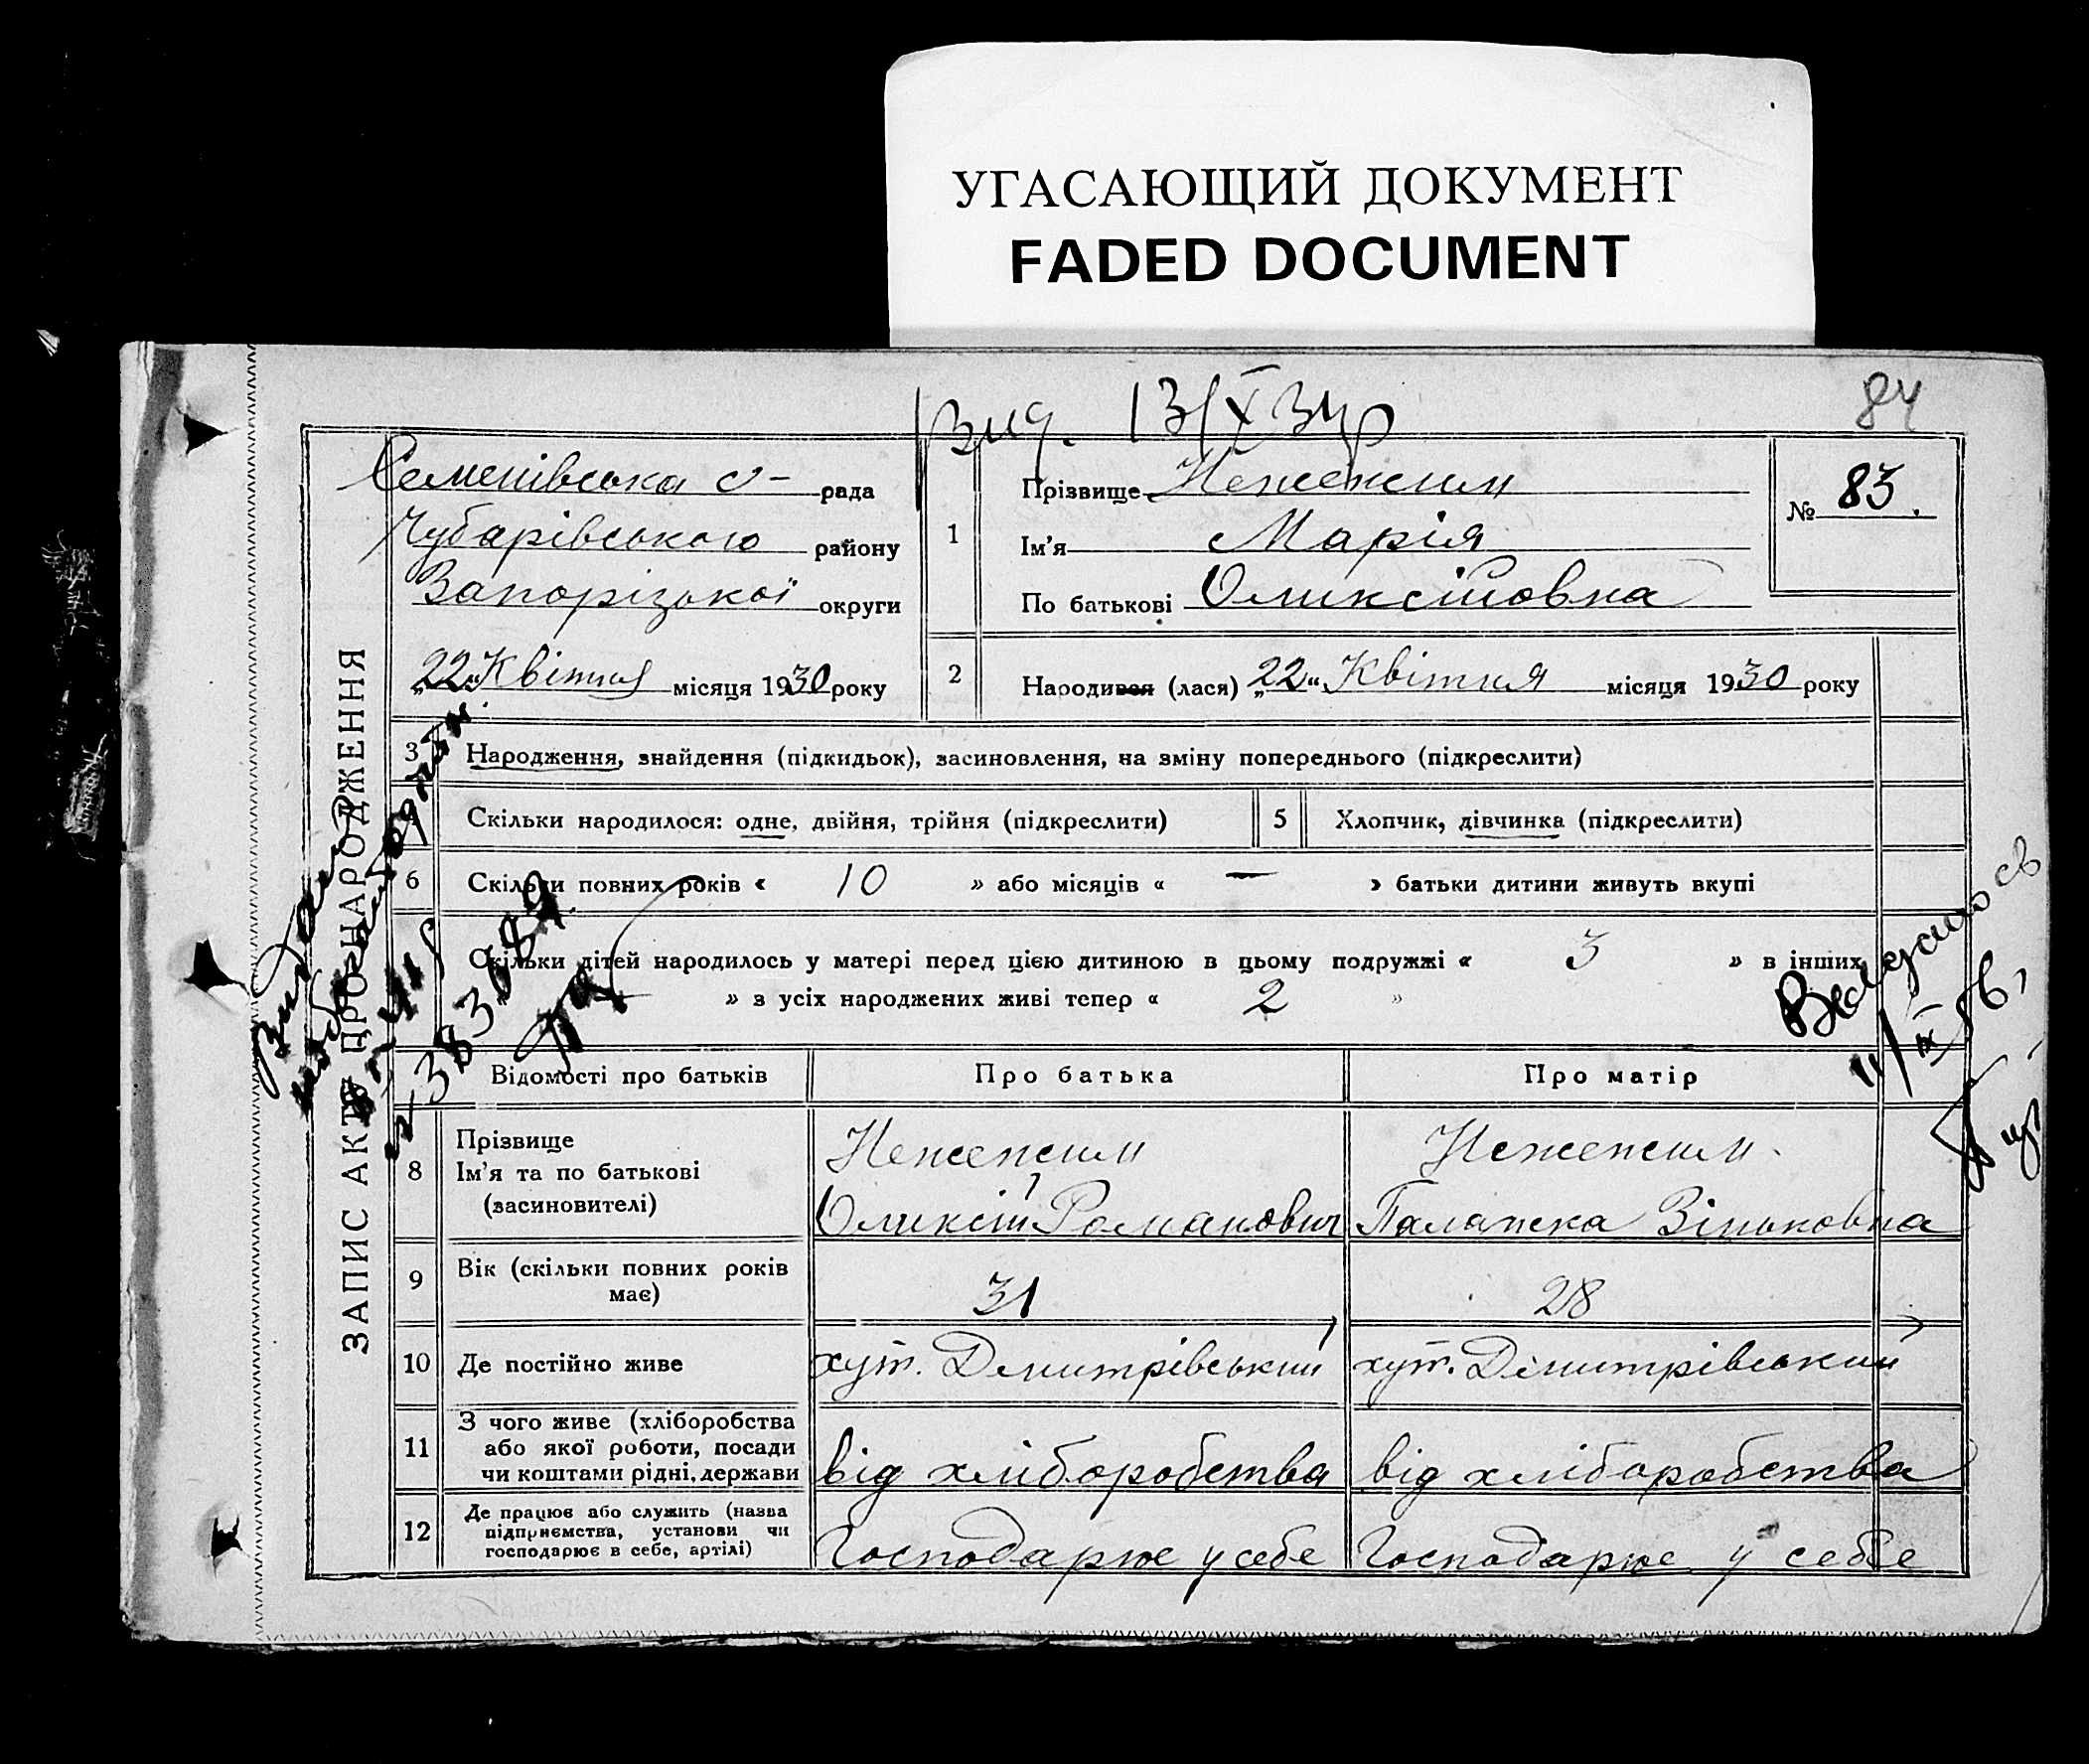 УГАСАЮЩИЙ ДОКУМЕНТ
FADED DOCUMENT
84
Вид. 13/X 34р
ЗАПИС АКТУ ПРО НАРОДЖЕННЯ
Семенівська с- рада
Чубарівського району
Запорізької округи
„22“ Квітня місяця 1930 року
1
Прізвище Нежежим
Ім'я Марія
По батькові Оликсіівовна
№ 83.
2
Народився (лася) „22“ Квітня місяця 1930 року
3 Народження, знайдення (підкидьок), засиновлення, на зміну попереднього (підкреслити)
Скільки народилося: одне, двійня, трійня (підкреслити)
5 Хлопчик, дівчинка (підкреслити)
6 Скільки повних років « 10 » або місяців « — » батьки дитини живуть вкупі
Скільки дітей народилось у матері перед цією дитиною в цьому подружжі « 3 » в інших
» з усіх народжених живі тепер « 2 »
Відомості про батьків Про батька Про матір
8 Прізвище
Ім'я та по батькові
(засиновителі)
Нежежим
Оликсій Романович
Нежежим
Палажка Зіньковна
9 Вік (скільки повних років має) 31 28
10 Де постійно живе хут. Дмитрівський хут. Дмитрівський
11 З чого живе (хліборобства
або якої роботи, посади
чи коштами рідні, держави
від хліборобства від хліборобства
12 Де працює або служить (назва
підприємства, установи чи
господарює в себе, артілі)
Господарює у себе Господарює у себе